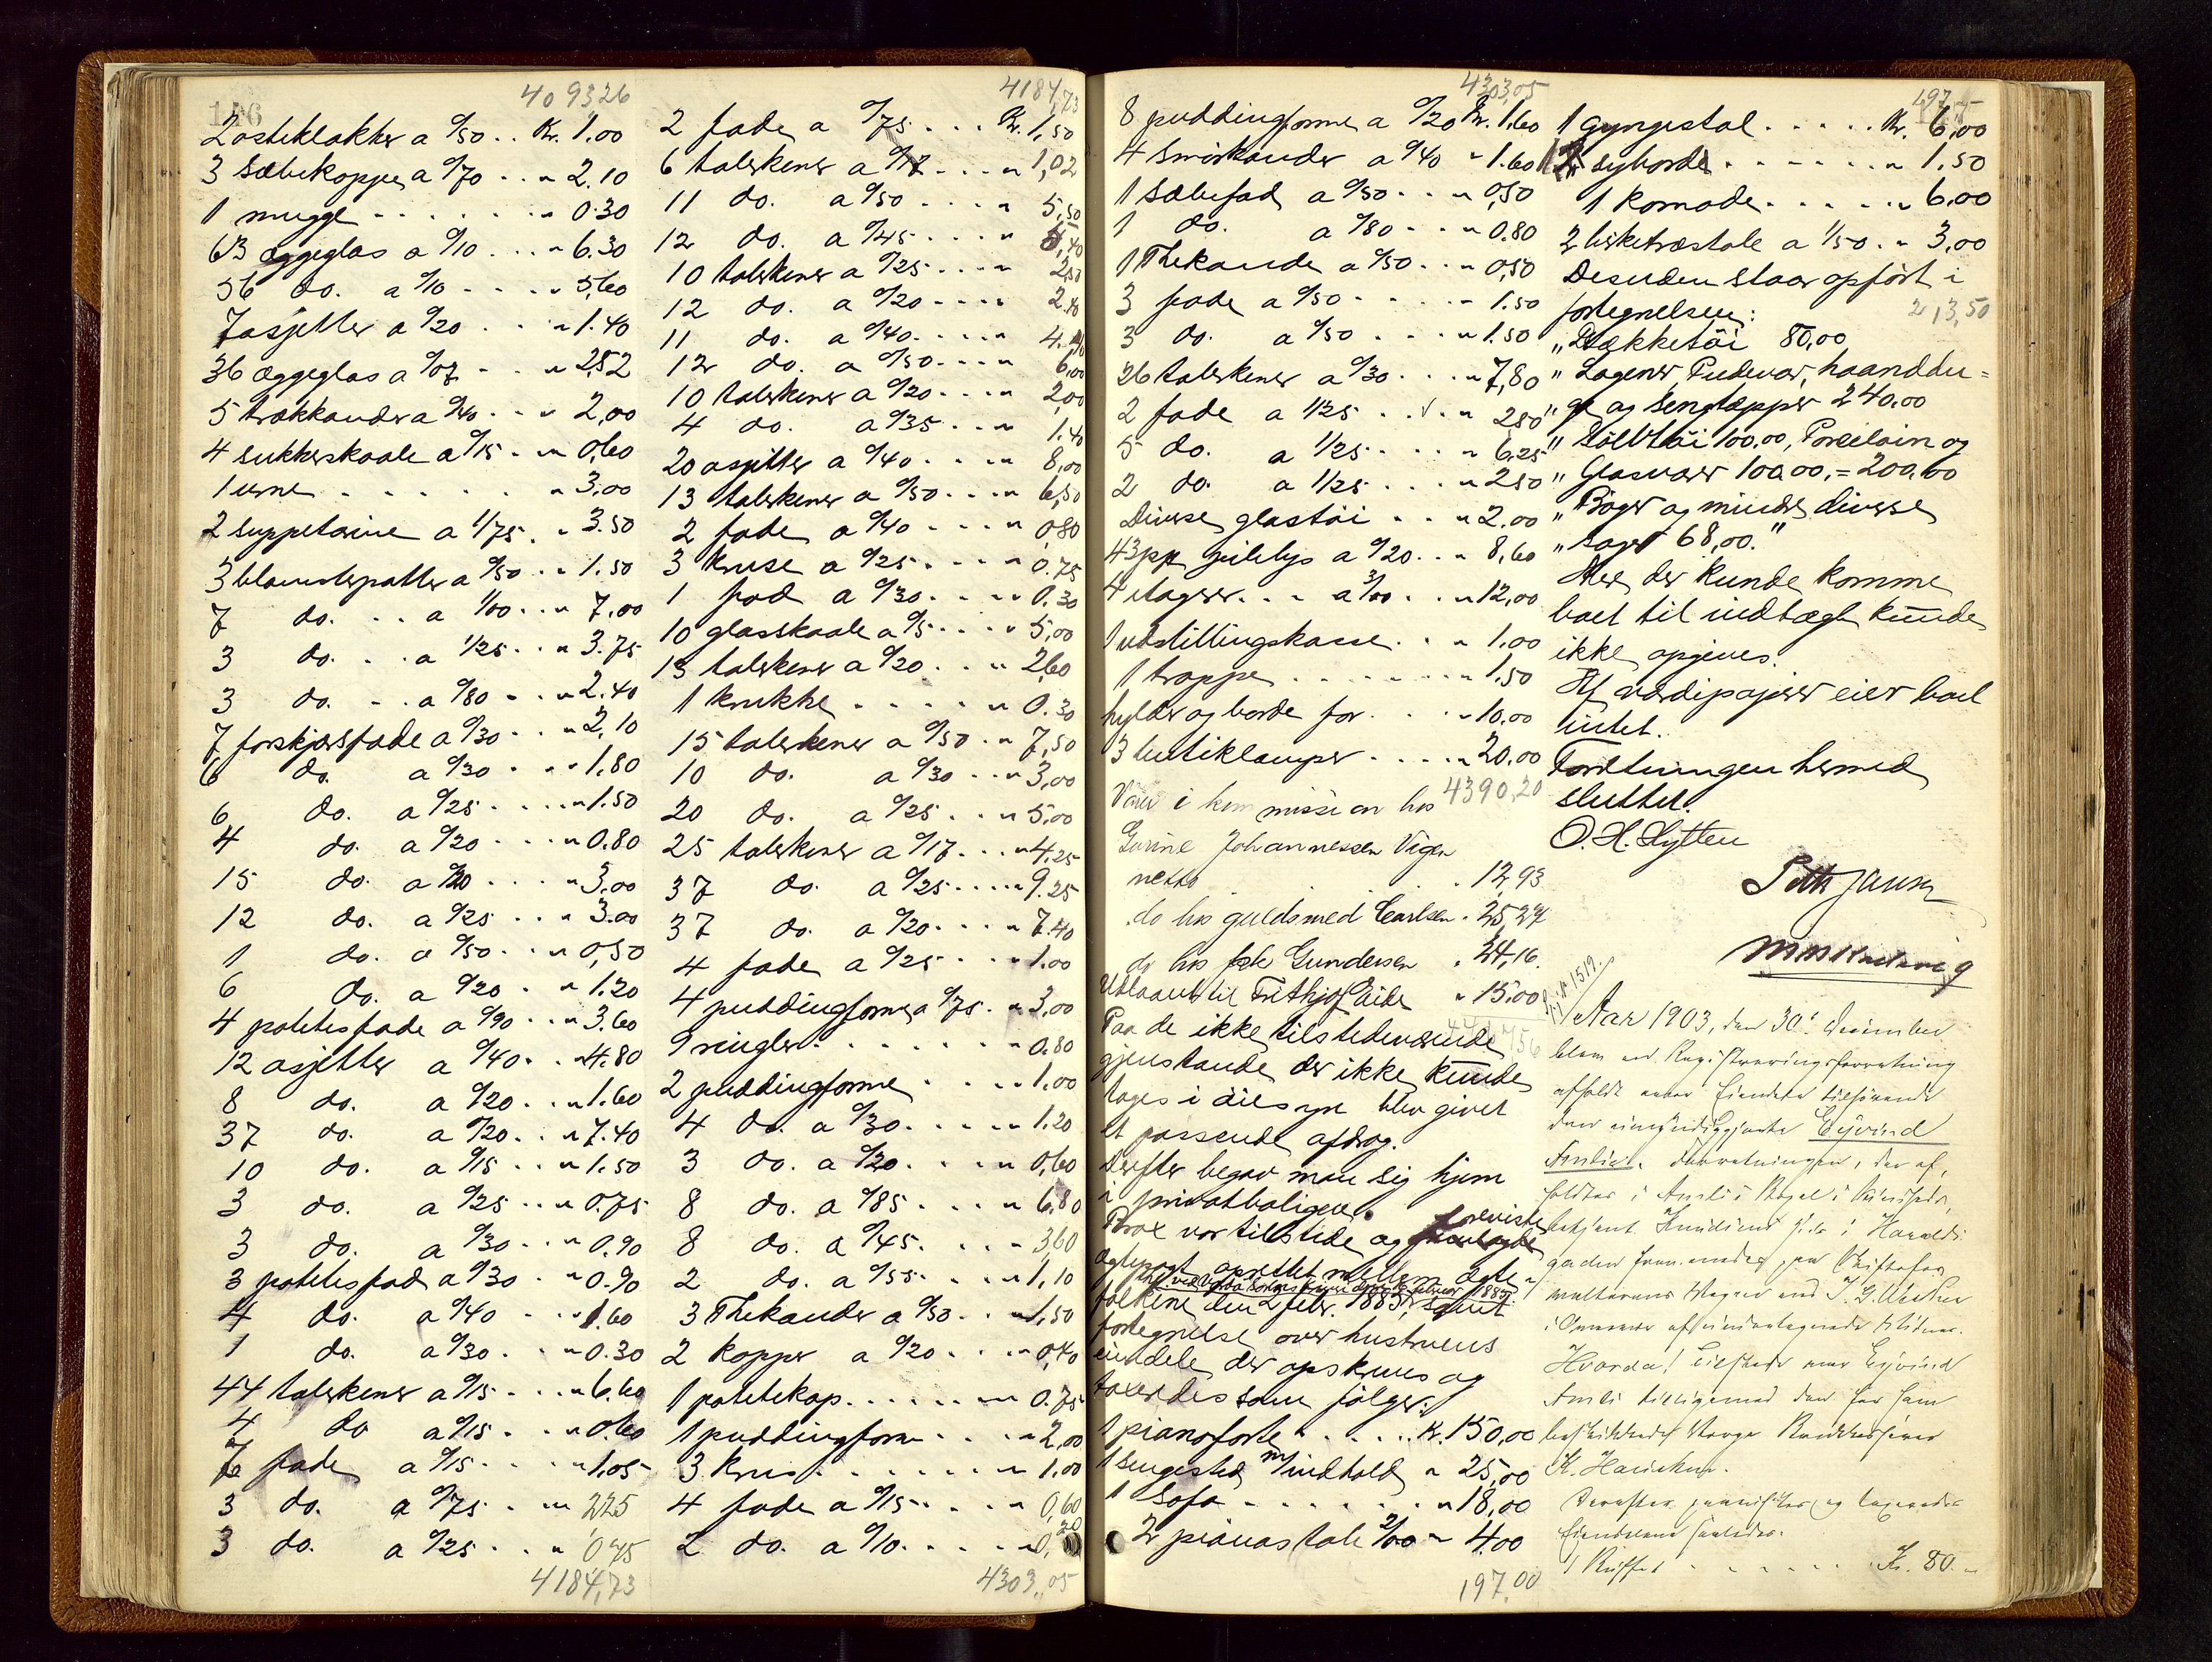 156
4093 26
2 osteklokker a 0/50 .. Kr. 1.00
3 sæbekopper a 0/70 .. " 2.10
1 mugge . . . . . . " 0.30
63 æggeglas a 0/10 . . . " 6.30
56 do. a 0/10 - - - " 5,60
7 asjetter a 0/20 . . . " 1.40
36 æggeglas a 0/07 . . . " 2,52
5 trækkander a 0/40 . . . " 2,00
4 sukkerskaale a 0/15 . . " 0,60
1 urne . . . . . . . " 3,00
2 suppeterine a 1/75 . . " 3.50
3 blomsterpotter a 0/50 . . " 1.50
7 do. . . a 1/00 . . . " 7,00
3 do. . . a 1/25 . . " 3.75
3 do. . . a 0/80 . . . " 2.40
7 forskjærsfade a 0/30 . . . " 2,10
6 do. a 0/30 . . . " 1,80
6 do. a 0/25 . . . . " 1.50
4 do. a 0/20 . . . " 0.80
15 do. a 0/20 . . . . " 3,00
12 do. a 0/25 . . . " 3.00
1 do. a 0/50 . . . " 0,50
6 do. a 0/20 . . " 1.20
4 potetesfade a 0/90 . . . " 3.60
12 asjetter a 0/40 . . " 4.80
8 do. a 0/20 . . . " 1.60
37 do. a 0/20 . . " 7.40
10 do. a 0/15 . . . " 1.50
3 do. a 0/25 . . . " 0.75
3 do. a 0/30 . . . " 0.90
3 potetesfad a 0/30 . " 0.90
4 do. a 0/40 . . . " 1.60
1 do. a 0/30 . . . " 0.30
44 talerkener a 0/15 . . . " 6.60
4 do a 0/15 . . . " 0.60
7 fade a 0/15 . . . . " 1,05
3 do. a 0/75 . . " 2.25
3 do. a 0/25 . . . " 0.75
4184,73
4184,73
2 fade a 0/75 . . . Kr. 1,50
6 talerkener a 0/17 . . . " 1,02
11 do. a 0/50 . . . . " 5,50
12 do. a 0/45 . . . . " 5,40
10 talerkener a 0/25 . . . . " 2,50
12 do. a 0/20 . . . . " 2.40
11 do. a 0/40 . . . . " 4.40
12 do. a 0/50 . . . " 6,00
10 talerkener a 0/20 . . . . " 2,00
4 do. a 0/35 . . . " 1.40
20 asjetter a 0/40 . . . . " 8,00
13 talerkener a 0/50 . . . . " 6,50
2 fade a 0/40 . . . . " 0,80
3 kruse a 0/25 . . . . " 0.75
1 fad a 0/30 . . . . " 0.30
10 glasskaale a 0/5 . . . . " 5,00
13 talerkener a 0/20 . . . " 2,60
1 krukke . . . . . " 0.30
15 talerkener a 0/50 . " 7,50
10 do. a 0/30 . . . " 3,00
20 do. a 0/25 . . " 5,00
25 talerkener a 0/17 . . . " 4,25
37 do. a 0/25 . . . . " 9.25
37 do. a 0/20 . . . . " 7.40
4 fade a 0/25 . . . . " 1.00
4 puddingforme a 0/75 . " 3,00
9 ringler . . . . . . . " 0.80
2 puddingforme . . . . " 1.00
4 do. a 0/30 . . . . . " 1.20
3 do. a 0/20 . . . . " 0,60
8 do. a 0/85 . . . " 6,80
8 do. a 0/45 . . . " 3,60
2 do. a 0/55 . . . . " 1,10
3 Thekander a 0/50 . . " 1,50
2 kopper a 0/20 . . . " 0,40
1 potetekop . . . . . . " 0.75
1 puddingform . . . . " 2,00
3 krus . . . . . . . " 1.00
4 fade a 0/15 . . . . " 0,60
2 do. a 0/10 . . . . " 0,20
4303,05
4303,05
8 puddingforme a 0/20 Kr. 1.60
4 smörkander a 0/40 " 1.60
1 sæbefad a 0/50 . . . " 0,50
1 do. a 0/80 . . . " 0.80
1 Thekande a 0/50 . . . " 0,50
3 fade a 0/50 . . . . " 1.50
3 do. a 0/50 . . . . " 1.50
26 talerkener a 0/30 . . . " 7,80
2 fade a 1/25 . . . " 2,50
5 do. a 1/25 . . . . " 6,25
2 do. a 1/25 . . . " 2.50
Diverse glastöi . . . " 2.00
43 pp julelys a 0/20 . . " 8,60
4 etagerer . . . a 3/00 . . " 12,00
1 udstillingskasse . . " 1.00
1 trappe . . . . . . . " 1,50
hylder og borde for . . . " 10.00
3 butiklamper . . . . " 20.00
4390,20
Varer i kommission hos
Gurine Johannessen Vigen
netto . . . 12,93
do hos guldsmed Carlsen . 25,27
do hos frk Gundersen . 24,16.
Udlaant til Frithjof Eide " 15.00
Paa de ikke tilstedeværende
gjenstande der ikke kunde
tages i öiesyn blev givet
et passende afdrag.
Derefter begav man sig hjem
i privatboligen.
Thoe var tilstede og foreviste
ægtepagt oprettet mellem ægte-
folkene den 2 febr. 1883, samt
fortegnelse over hustruens
eiendele der opskreves og
taxeredes som fölger:
1 pianoforte . . . . Kr. 150,00
1 sengested m/indhold " 25,00
1 Sofa . . . . . . . " 18,00
2 pianostole 2/00 " 4.00
197.00
197,-
1 gyngestol . . . . . Kr. 6,00
1 syborde . . . . . . " 1.50
1 komode . . . . . " 6.00
2 birketræstole a 1/50 . " 3,00
Desuden staar opfört i
fortegnelsen:
213,50
"Dækketöi 80,00
"Lagener, Pudevar, haanddu=
"ge og sengtæpper 240.00
"Sölvtöi 100,00, Porcilain og
"Glasvarer 100.00,= 200.00
"Böger og mindre diverse
"sager 68,00."
Mere der kunde komme
boet til indtægt kunde
ikke opgives.
Af værdipapirer eier boet
intet.
Forretningen hermed
sluttet.
O. H. Lytten
Aar 1903, den 30' December
blev en Registreringsforretning
afholdt over Eiendele tilhörende
den umyndiggjorte Eyvind
Amlie. Forretningen, der af-
gaden
Hvorda! tilstede var Eyvind
Amli tilligemed den for ham
Derefter
1 Buffet . . . . . Kr. 80. "